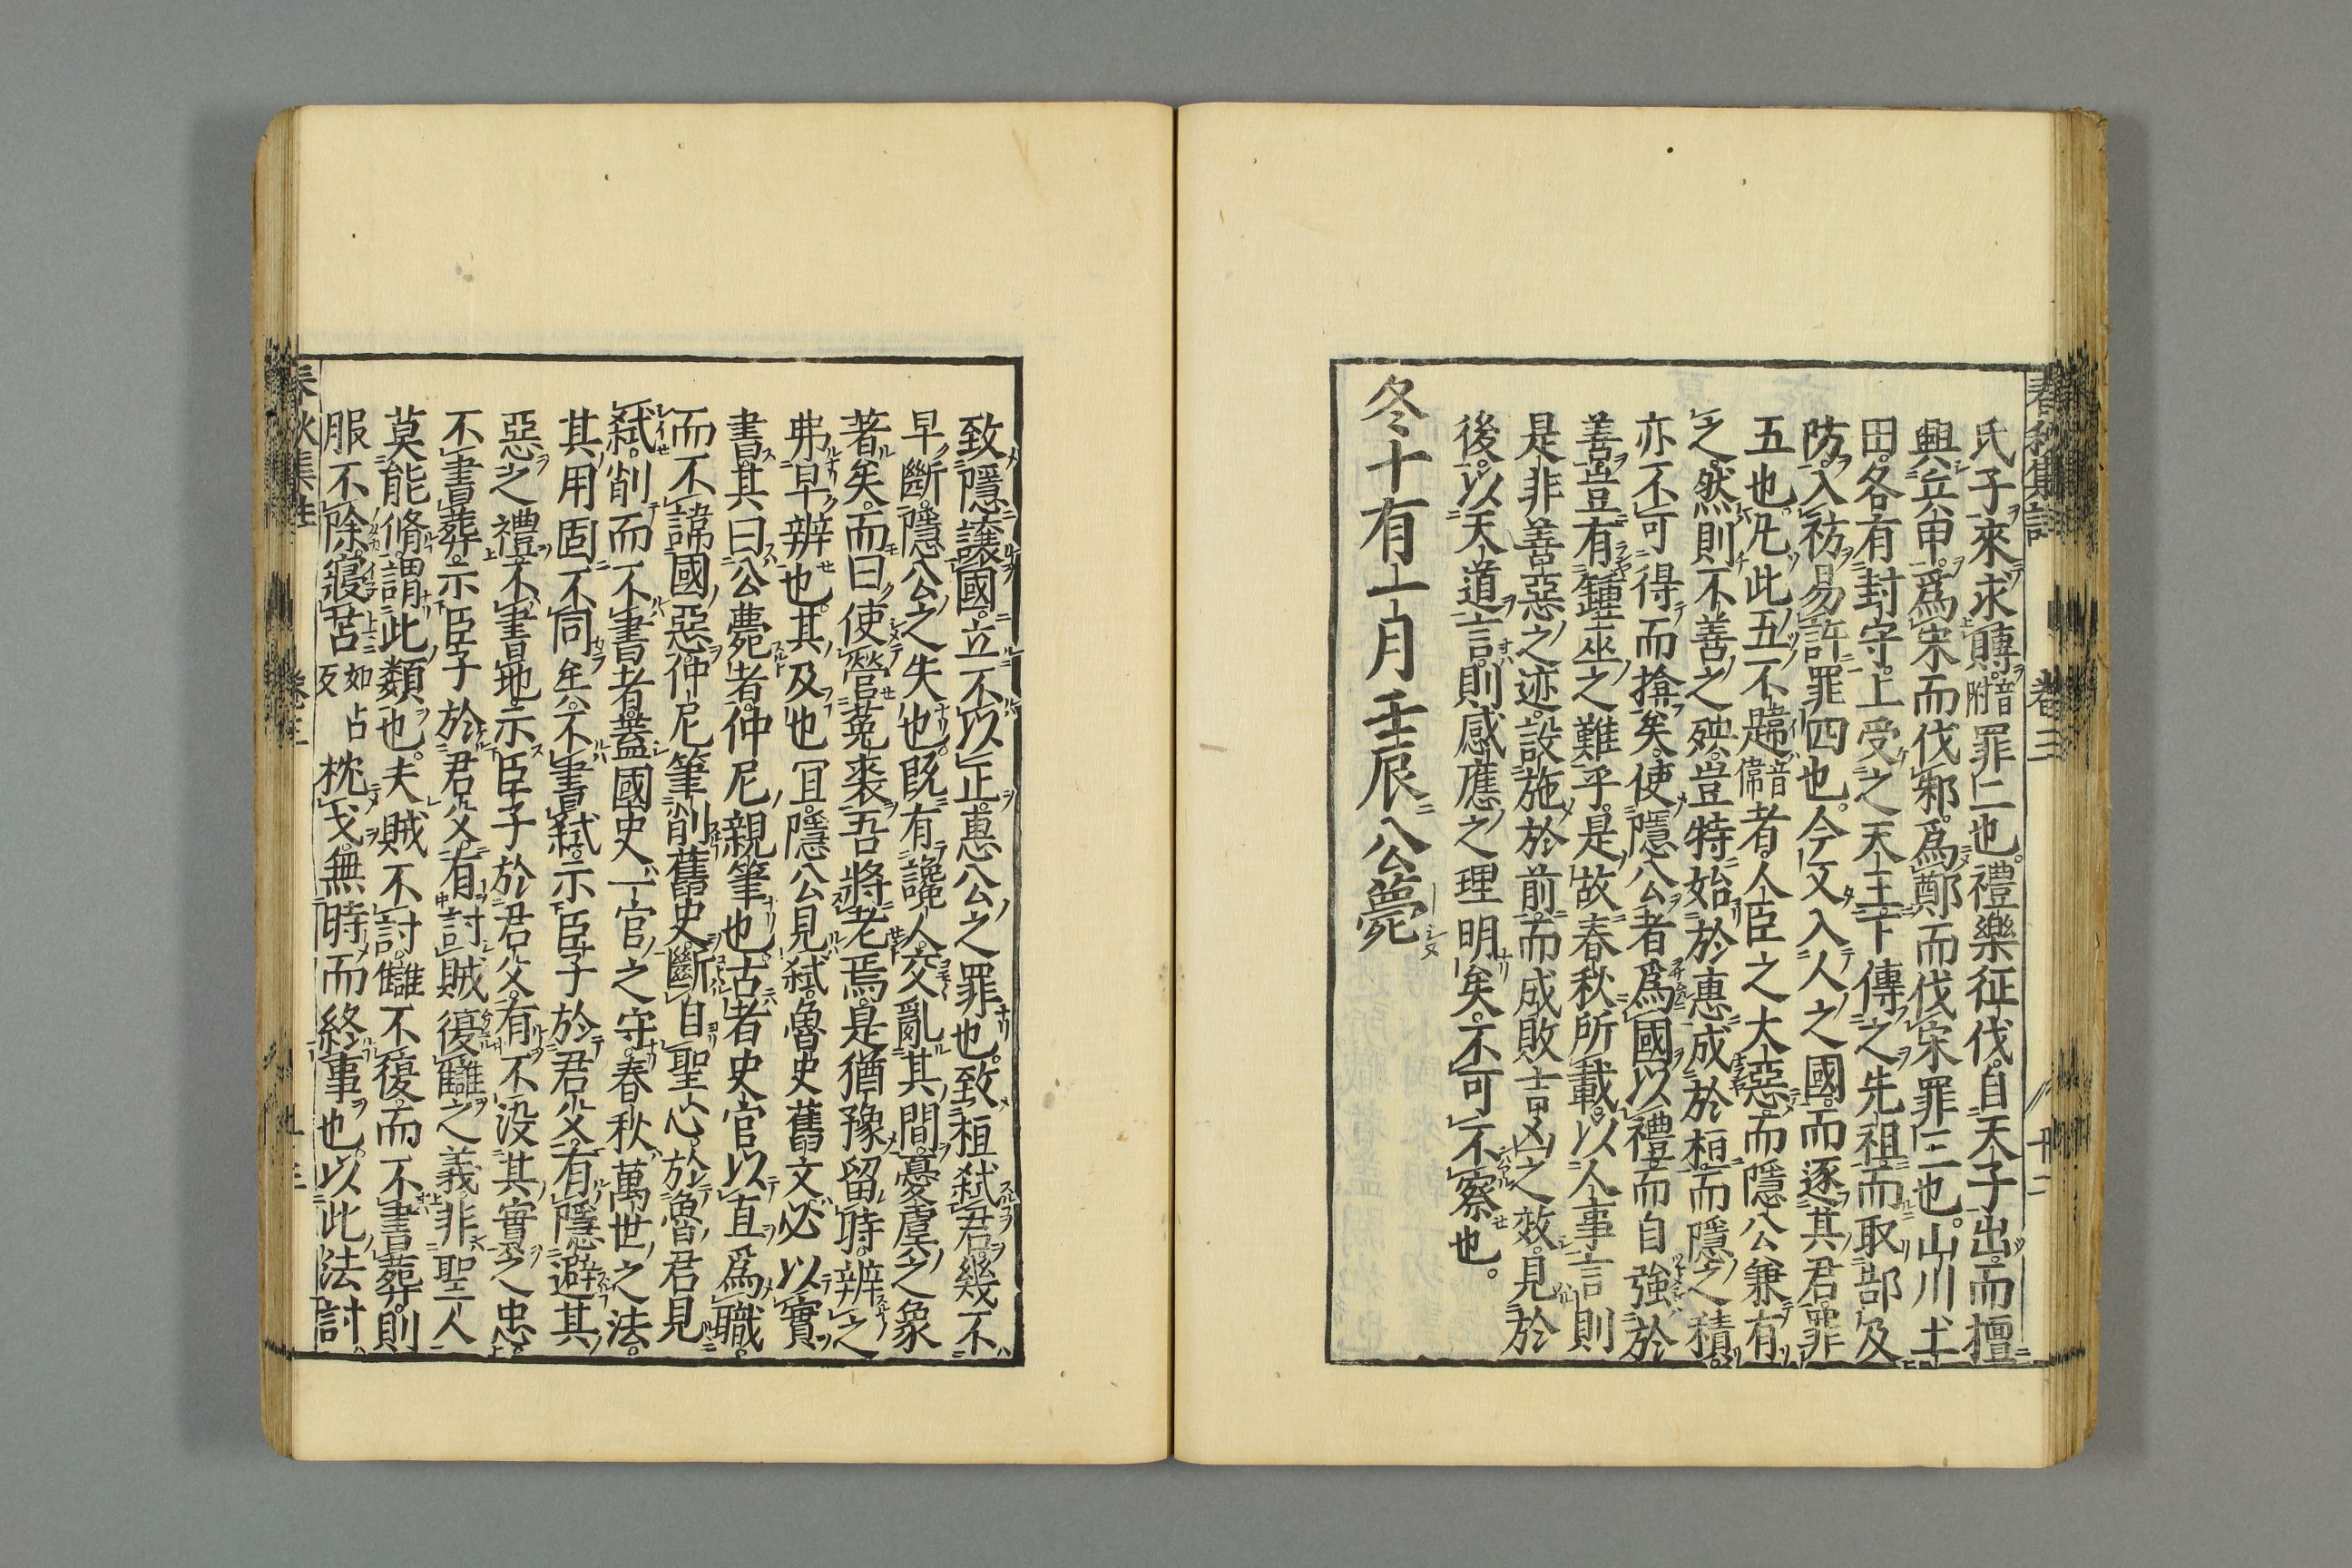 氏子來求賻音附罪二也。禮樂征伐。自天子出。而擅
興兵甲。爲宋而伐邾。爲鄭而伐宋罪三也。山川土
田。各有封守。上受之天王。下傳之先祖。而取郜及
防。入祊易許罪四也。今又入人之國。而逐其君罪
五也。凡此五不韙音偉者。人臣之大惡。而隱公兼有
之。然則不善之殃。豈特始於惠成於桓。而隱之積。
亦不可得而揜矣。使隱公者爲國以禮而自強於
善豈有鍾巫之難乎。是故春秋所載。以人事言則
是非善惡之迹。設施於前。而成敗吉凶之效。見於
後。以天道言。則感應之理明矣。不可不察也。
冬十有一月壬辰公薨
致隱讓國。立不以正。惠公之罪也。致桓弑君。幾不
早斷。隱公之失也。既有讒人。交亂其間。憂虞之象
著矣。而曰使營菟裘。吾將老焉。是猶豫留時。辨之
弗早辨也。其及也宜。隱公見弑。魯史舊文必以實
書。其曰公薨者。仲尼親筆也。古者史官以直爲職。
而不諱國惡。仲尼筆削舊史。斷自聖心。於魯君見
弑。削而不書者。蓋國史一官之守。春秋萬世之法。
其用固不同矣。不書弑。示臣子於君父。有隱避其
惡之禮。不書地。示臣子於君父。有不沒其實之忠。
不書葬。示臣子於君父。有討賊復讎之義。非聖人
莫能脩。謂此類也。夫賊不討。讎不復。而不書葬。則
服不除。寢苫枕戈。無時而終事也。以此法討
春秋集註 卷三